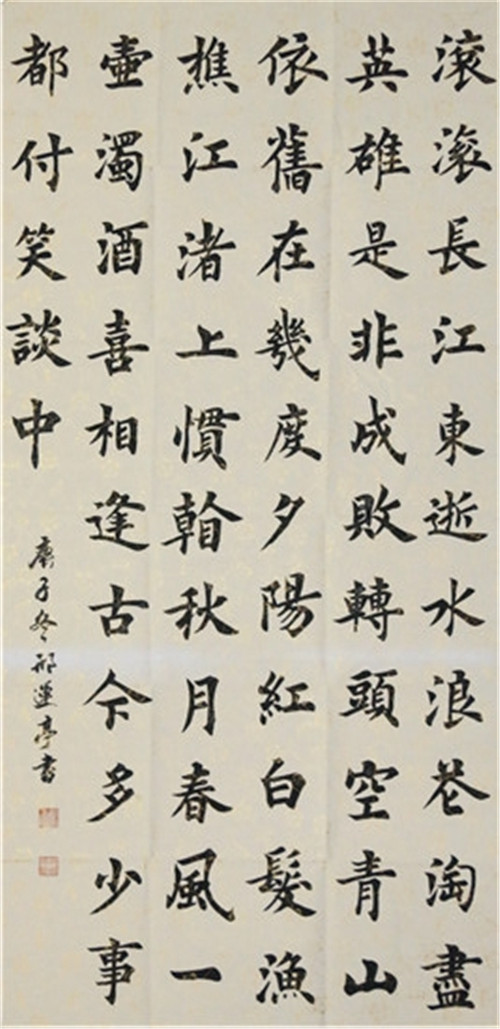 滚滚長江東逝水浪花淘盡
英雄是非成敗轉頭空青山
依舊在幾度夕陽紅白髮漁
樵江渚上慣看秋月春風一
壺濁酒喜相逢古今多少事
都付笑談中
庚子冬邢蓮亭書